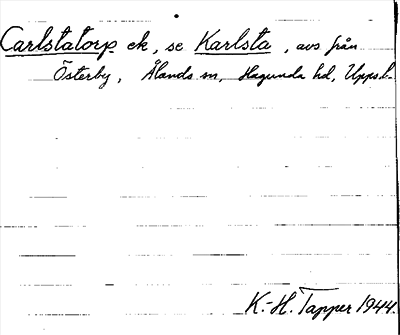 Carlstatorp ek, se Karlsta, avs från
Österby, Ålands sn, Hagunda hd, Uppsl.
K.-H. Tapper 1944.